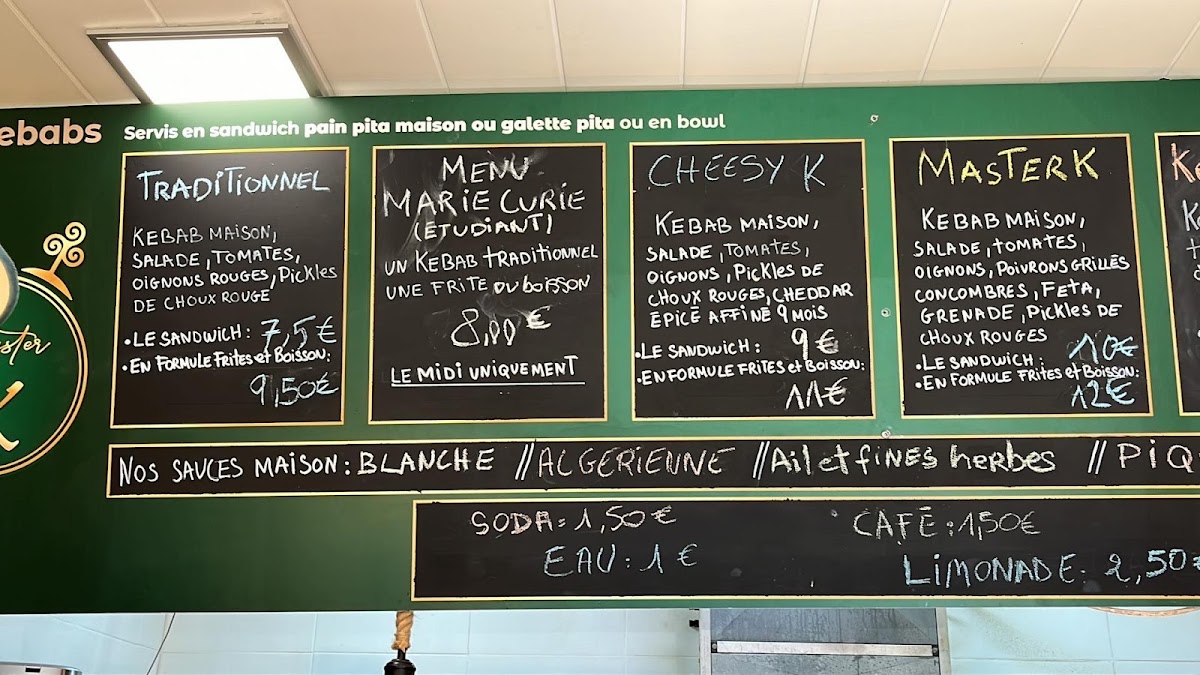 ebabs
Servis en sandwich pain pita maison ou galette pita ou en bowl
TRADITIONNEL
KEBAB MAISON,
SALADE, TOMATES,
OIGNONS ROUGES, PICKLES
DE CHOUX ROUGE
• LE SANDWICH : 7,5€
• EN FORMULE FRITES et BOISSON :
9,50€
MENU
MARIE CURIE
(ÉTUDIANT)
UN KEBAB TRADITIONNEL
UNE FRITE OU BOISSON
8,00€
LE MIDI UNIQUEMENT
CHEESY K
KEBAB MAISON,
SALADE, TOMATES,
OIGNONS, PICKLES DE
CHOUX ROUGES, CHEDDAR
EPICÉ AFFINÉ 9 MOIS
• LE SANDWICH : 9€
• EN FORMULE FRITES et BOISSON :
11€
MASTER K
KEBAB MAISON,
SALADE, TOMATES,
OIGNONS, POIVRONS GRILLÉS
CONCOMBRES, FETA,
GRENADE, PICKLES DE
CHOUX ROUGES
• LE SANDWICH : 10€
• EN FORMULE FRITES et BOISSON :
12€
NOS SAUCES MAISON : BLANCHE // ALGERIENNE // Ail et fines herbes // PIQ
SODA = 1,50€
CAFÉ : 1,50€
EAU : 1€
LIMONADE. 2,50€